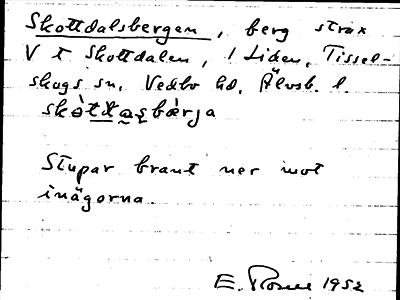 Skottdalsbergen, berg strax
V t Skottdalen, 1 Liden, Tissel-
skogs sn, Vedbo hd, Älvsb. l.
Stupar brant ner mot
inägorna.
E. Rosell 1952